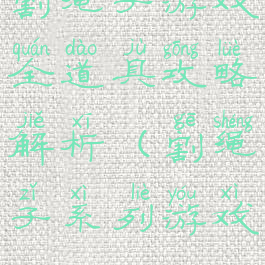 割绳子游戏
quán dào jù gōng lüè
全道具攻略
jiě xī gē shéng
解析(割绳
zǐ xì liè yóu xì
子系列游戏